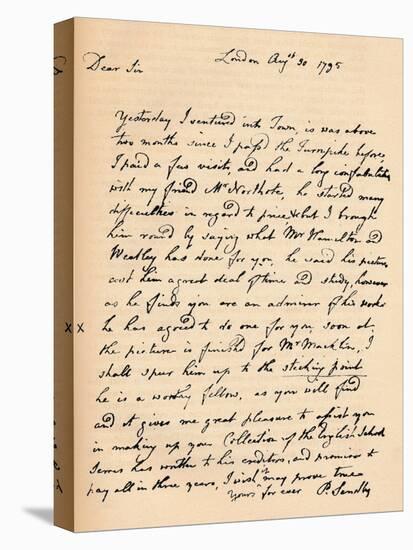 London Augst 30 1795
Dear Sir
Yesterday I ventured into Town, is was above
two months since I pass'd the Turnpike before,
I paid a few visits, and had a long confabulation
with my friend Mr Northcote, he started many
difficulties in regard to price, but I brought
him round by saying what Mr Hamilton and
Weatley has done for you, he said his pictures
cost him a great deal of time and study, however
as he finds you are an admirer of his works
he has agreed to do one for you, soon as
the picture is finished for Mr Macklin, I
shall spur him up to the sticking point
he is a worthy fellow, as you will find
and it gives me great pleasure to assist you
in making up your Collection of the English School
Serres has written to his creditors, and promises to
pay all in three years, I wish it may prove true
Yours for ever P. Sandby
x x